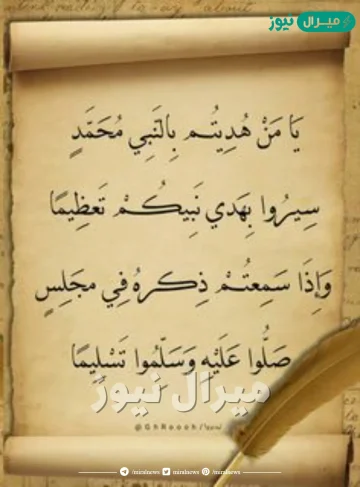 ميرال نيوز
يَا مَنْ هُدِيتُـم بِالنَّبِي مُحَمَّدٍ
سِيرُوا بِهَدي نَبِيكُـمْ تَعظِيمًا
وَإِذَا سَمِعتُـمْ ذِكرهُ فِي مجَلِسٍ
صَلُّوا عَلَيْهِ وَسَلِّمُوا تَسْلِيمًا
ميرال نيوز
/miralnews /miralnews /miralnews